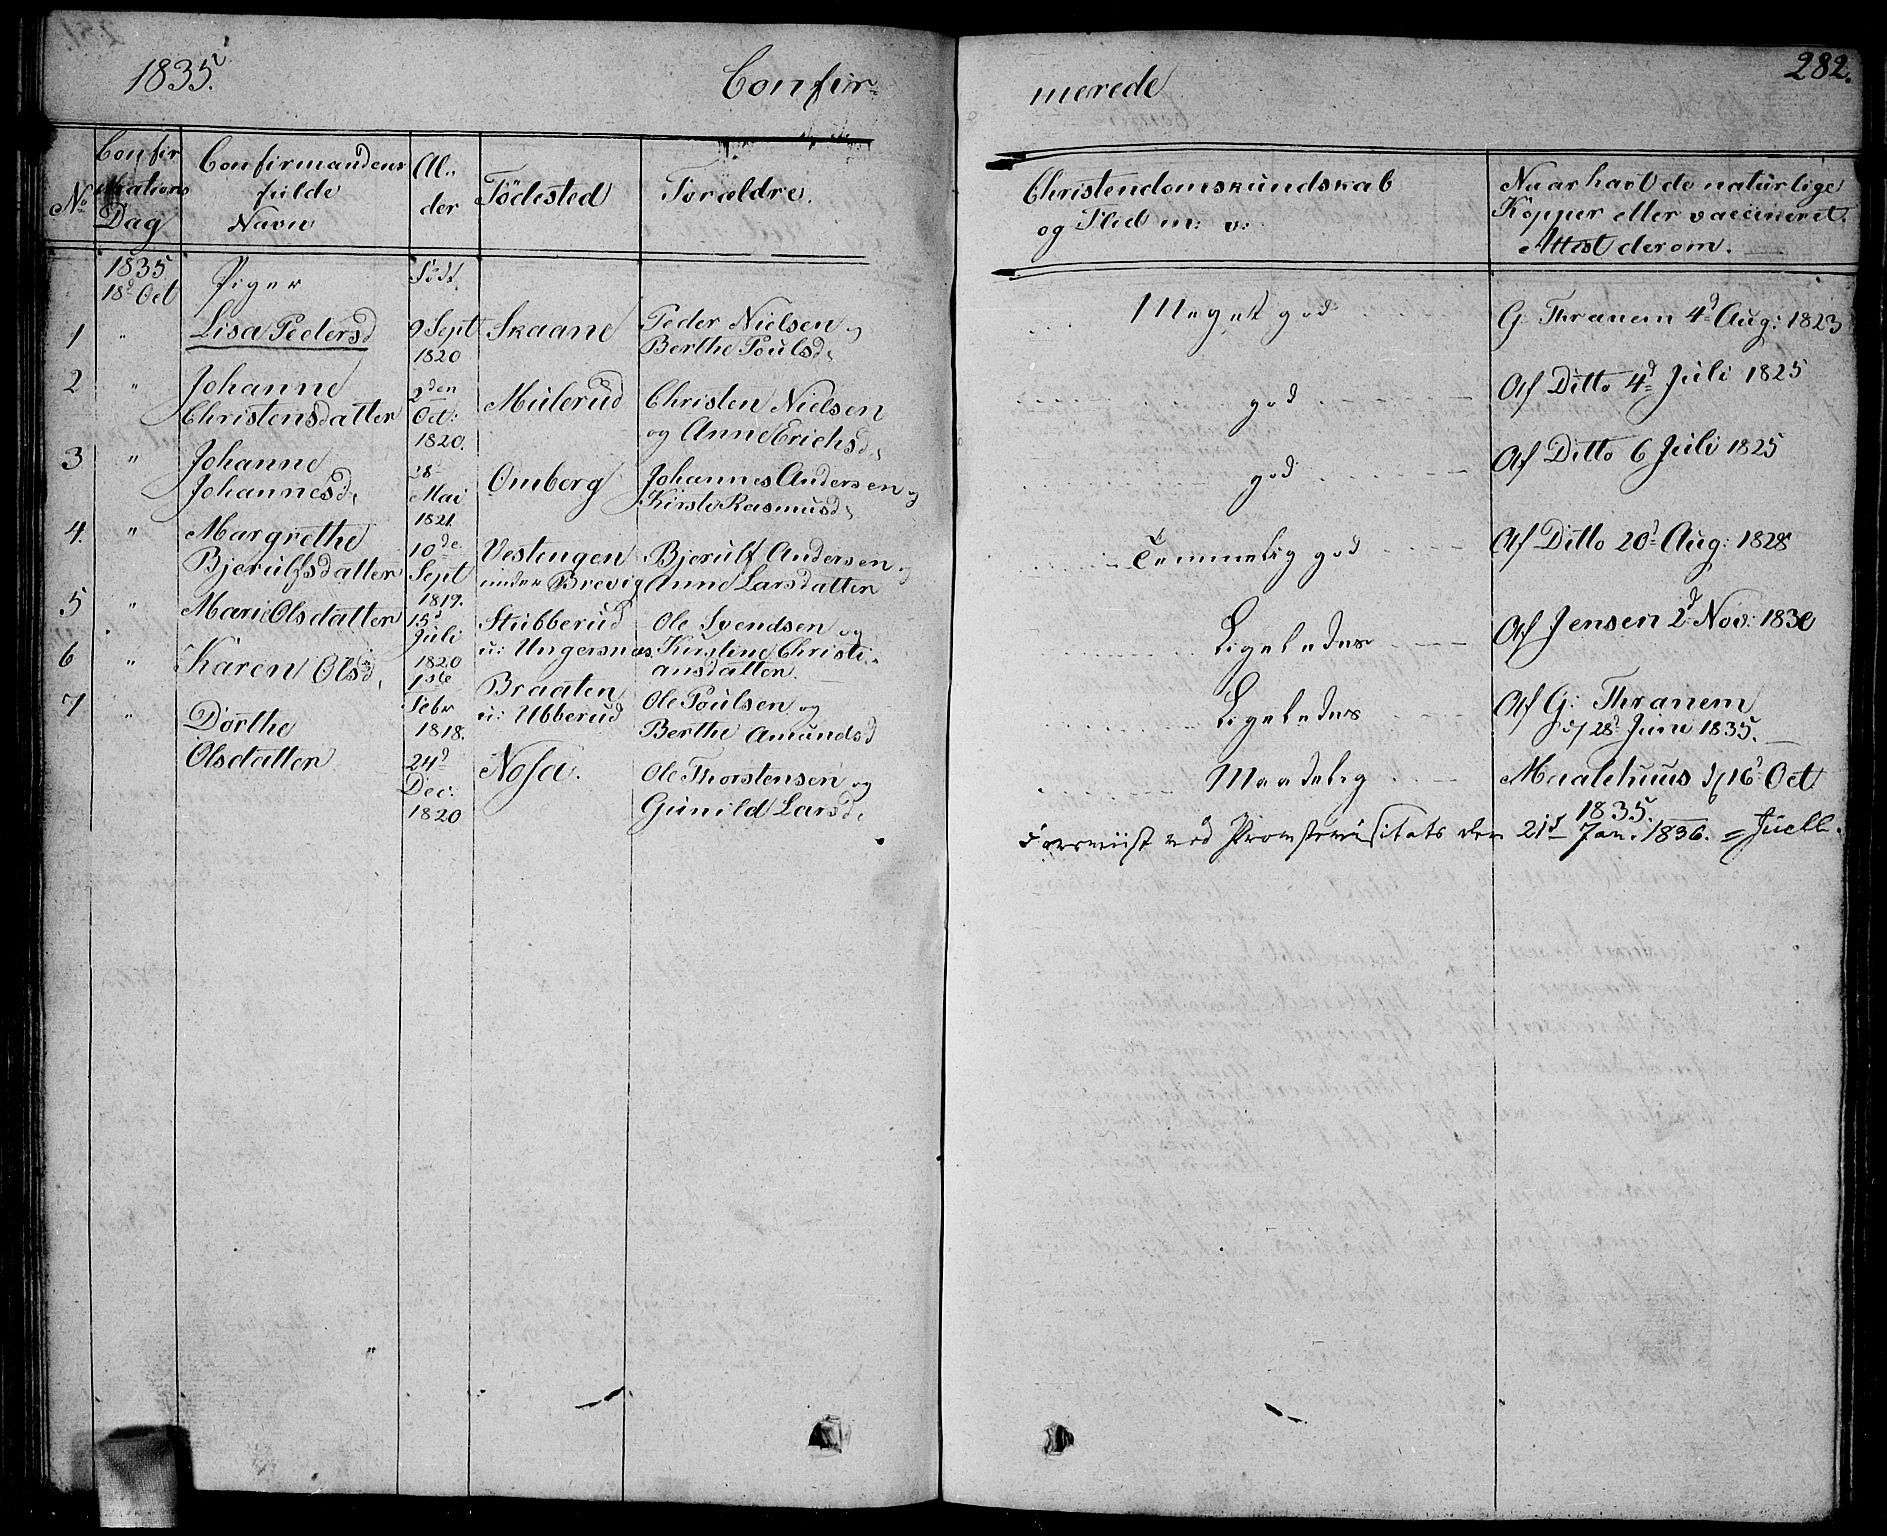 1835.
Confir-
merede
282.
No
Confir
mations
Dag
Confirmandens
fulde
Navn
Al-
der
Födested
Forældre.
Christendomskundskab
og Flid m: v:
Naar havt de naturlige
Kopper eller vaccineret.
Attest derom.
1835
18d Oct
Piger
Födt.
1 " Lisa Pedersd 9 Sept Skaane Peder Nielsen og
1820 Berthe Poulsd.
Meget god G. Thranem 4d Aug: 1823
2 " Johanne 2den Mülerud Christen Nielsen
Christensdatter Oct: og Anne Erichsd.
1820.
god Af Ditto 4d Juli 1825
3 " Johanne 28 Omberg Johannes Andersen og
Johannesd. Mai Kirste Rasmusd.
1821.
god Af Ditto 6 Juli 1825
4. " Margrethe 10de Vestengen Bjerulf Andersen og
Bjerulfsdatter Sept under Brevig Anne Larsdatter
1819.
Temmelig god Af Ditto 20d Aug: 1828
5 " Marie Olsdatter 15d Stubberud Ole Svendsen og
Juli u: Ungersnæs Kirstine Christi-
1820 ansdatter.
Ligeledes Af Jensen 2d Nov: 1830
6 " Karen Olsd. 1ste Braaten Ole Poulsen og
Febr u: Ubberud Berthe Amundsd
1818.
Ligeledes Af G: Thranem
d/ 28d Juni 1835.
7 " Dorthe 24d Nosa. Ole Thorstensen og
Olsdatter Dec: Gunild Larsd.
1820
Maadelig Maalehuus d/ 16d Oct
1835.
Foreviist ved Provstevisitats den 21d Jan. 1836. = Juell.